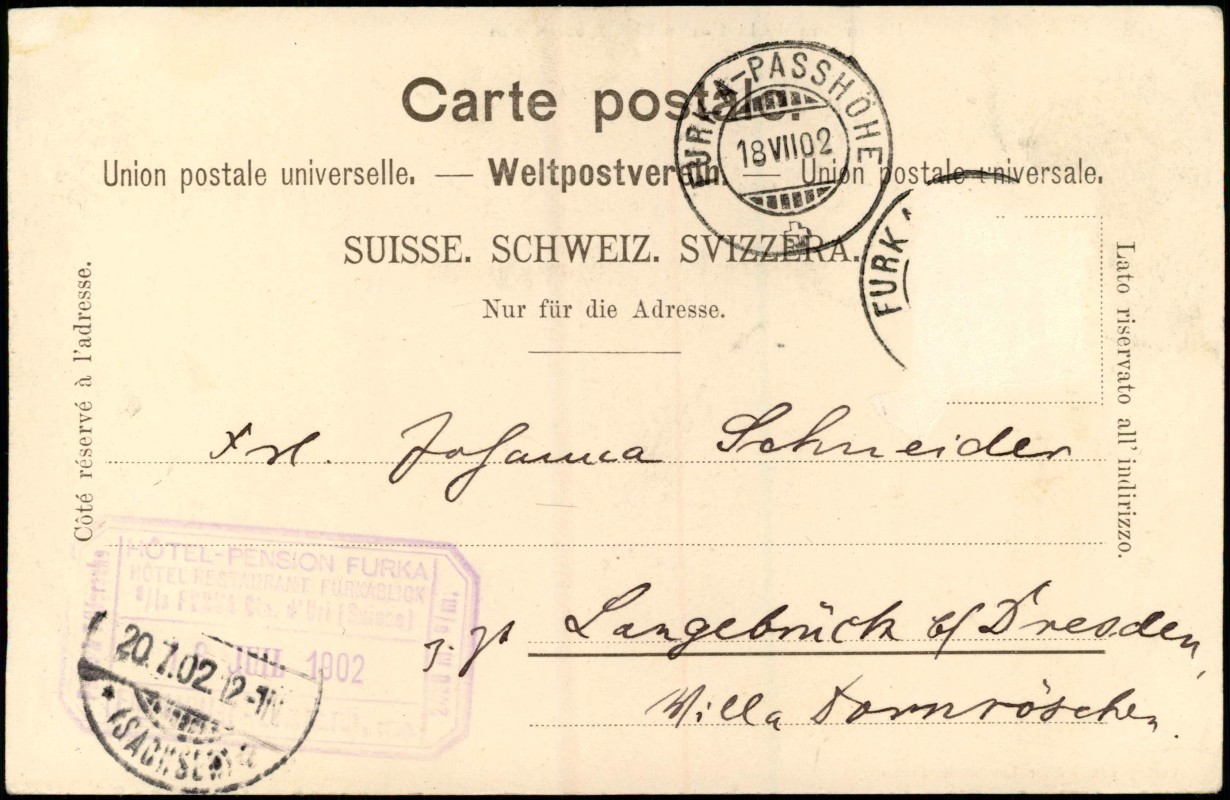 Carte postale.
FURKA-PASSHÖHE
18 VII 02
Union postale universelle. — Weltpostverein. — Union postale universale.
SUISSE. SCHWEIZ. SVIZZERA.
FURKA
Nur für die Adresse.
Côté réservé à l'adresse.
Lato riservato all'indirizzo.
Frl. Johanna Schneider
HÔTEL-PENSION FURKA
HÔTEL RESTAURANT FURKABLICK
a/la FURKA Cta. d'Uri (Suisse)
JUIL 1902
z. Zt. Langebrück b/ Dresden,
Villa Dornröschen.
20.7.02.12-1N
(SACHSEN)